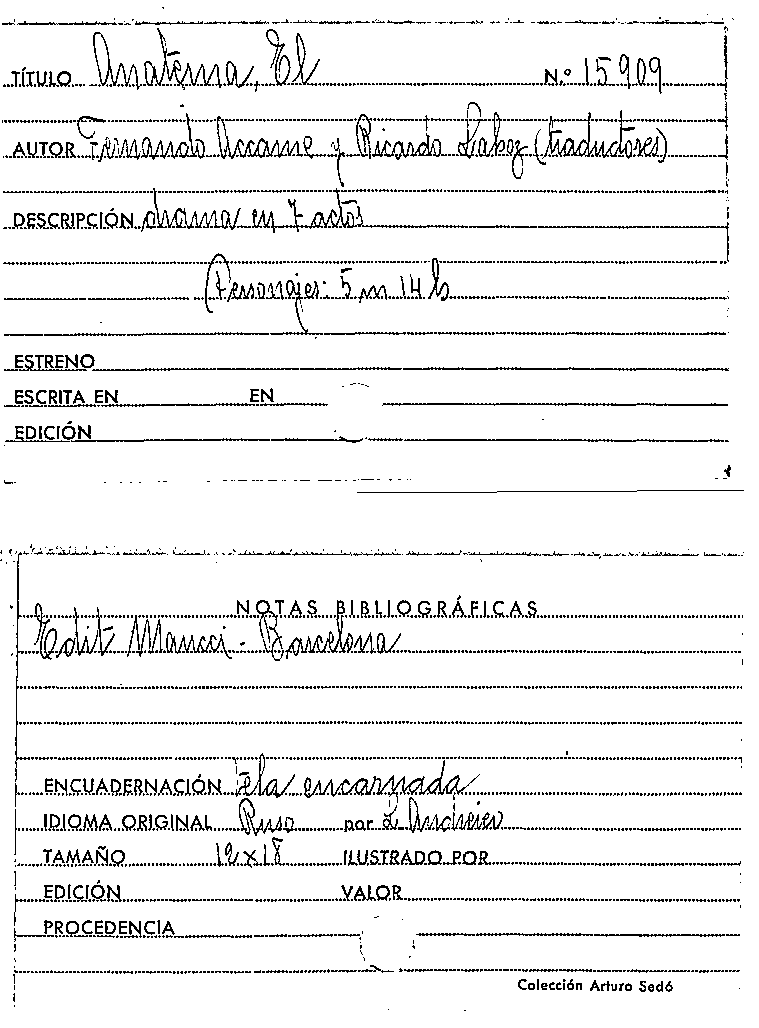 TÍTULO Anatema, El N.º 15909
AUTOR Fernando Accame y Ricardo Laboz (traductores)
DESCRIPCIÓN drama en 7 actos
Personajes: 5 m 14 h
ESTRENO
ESCRITA EN EN
EDICIÓN
NOTAS BIBLIOGRÁFICAS
Edit Maucci - Barcelona
ENCUADERNACIÓN tela encarnada
IDIOMA ORIGINAL Ruso por L Andreiev
TAMAÑO 12x18 ILUSTRADO POR
EDICIÓN VALOR
PROCEDENCIA
Colección Arturo Sedó